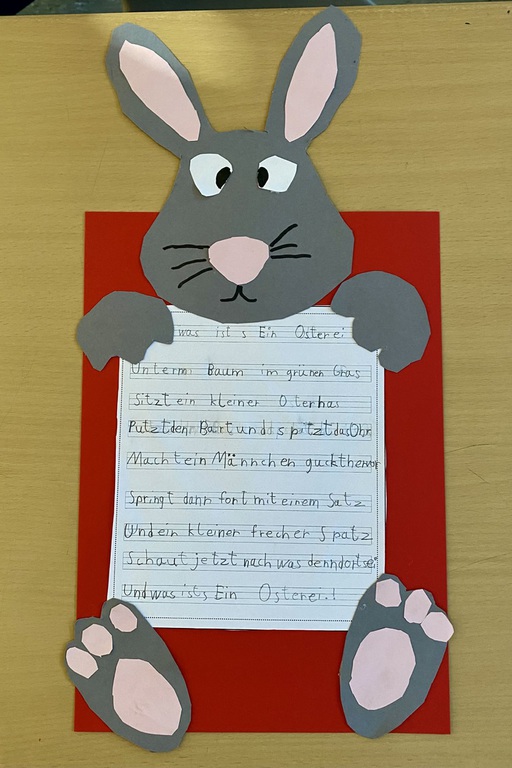 was ist s Ein Osterei
Unterm Baum im grünen Gras
Sitzt ein kleiner Oterhas
Putzt den Bart und s pitzt das Ohr
Macht ein Männchen guckt hervor
Springt dann fort mit einem Satz
Und ein kleiner frecher Spatz
Schaut jetzt nach was denn dort sei
Und was ists Ein Osterei.!